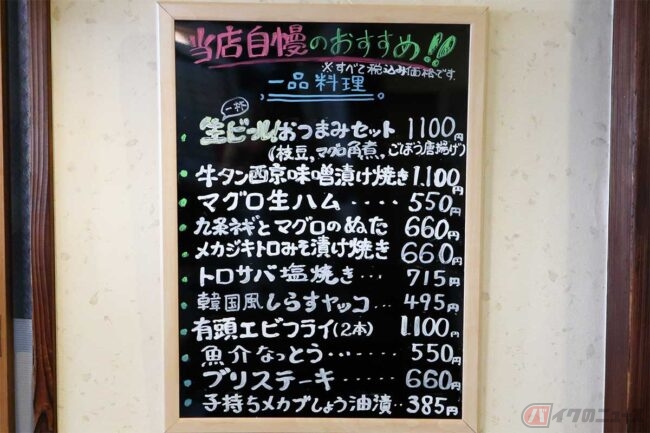 当店自慢のおすすめ!!
※すべて税込み価格です
一品料理
一杯
生ビール!おつまみセット 1100円
(枝豆,マグロ角煮,ごぼう唐揚げ)
牛タン西京味噌漬け焼き 1.100円
マグロ生ハム.... 550円
九条ネギとマグロのぬた 660円
メカジキトロみそ漬け焼き 660円
トロサバ塩焼き... 715円
韓国風しらすヤッコ... 495円
有頭エビフライ(2本) 1.100円
魚介なっとう....... 550円
ブリステーキ..... 660円
子持ちメカブしょう油漬... 385円
バイクのニュース